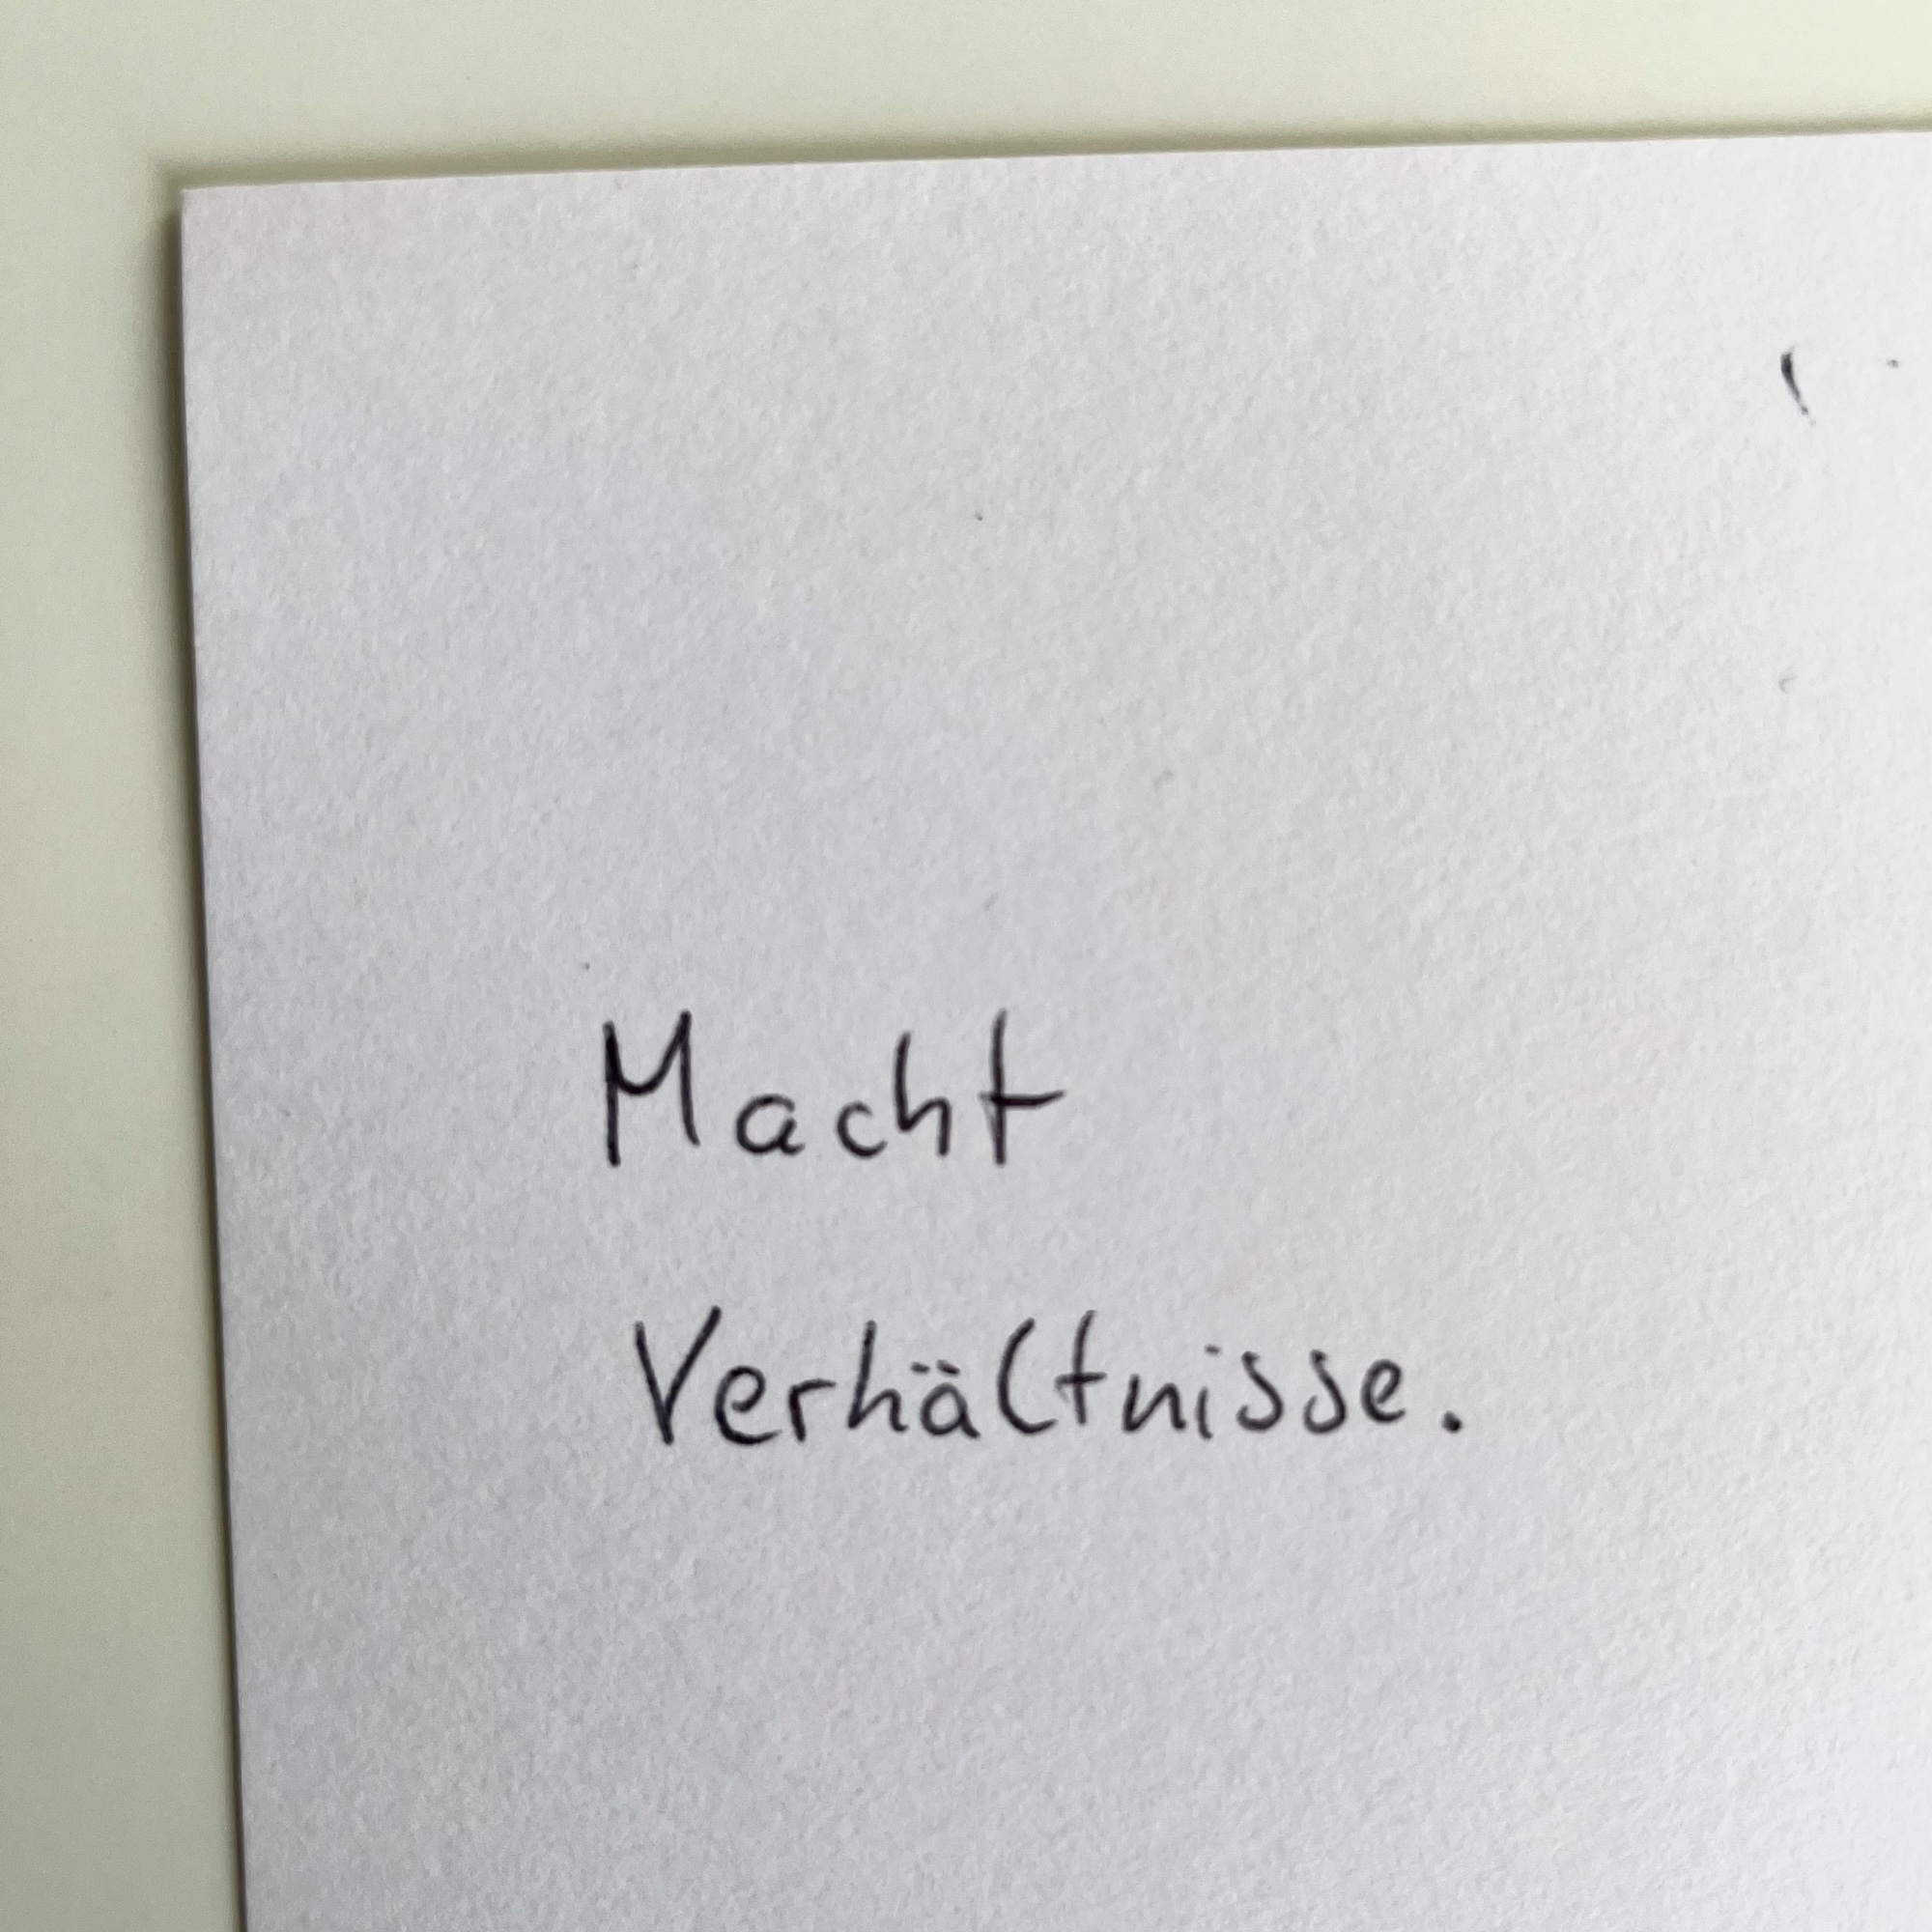 Macht
Verhältnisse.